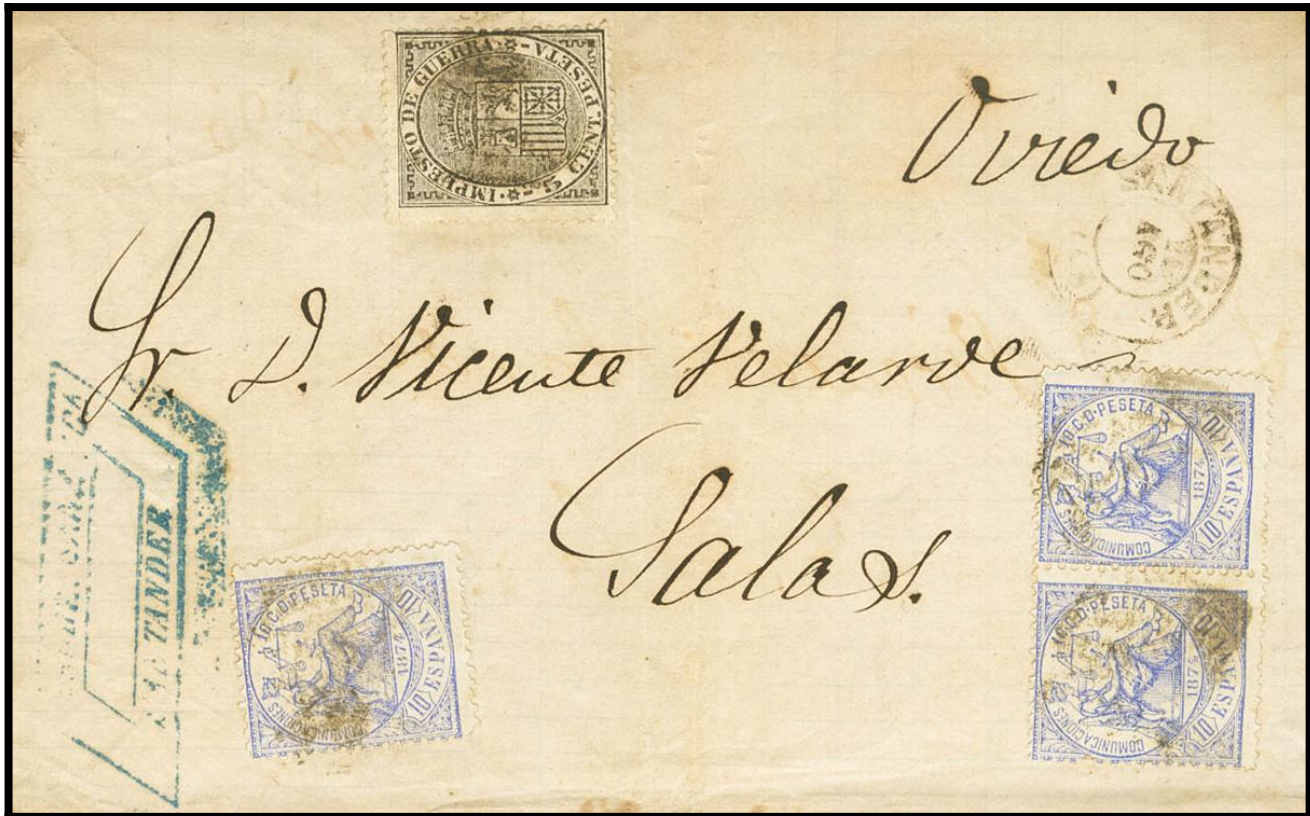 IMPUESTO DE GUERRA
5 CENT. PESETA
Oviedo
AGO
Sr. D. Vicente Velarde
Salas.
TANDER
10 C. D. PESETA
COMUNICACIONES
1874
10 ESPAÑA 10
10 C. D. PESETA
COMUNICACIONES
1874
10 ESPAÑA 10
10 C. D. PESETA
COMUNICACIONES
1874
10 ESPAÑA 10